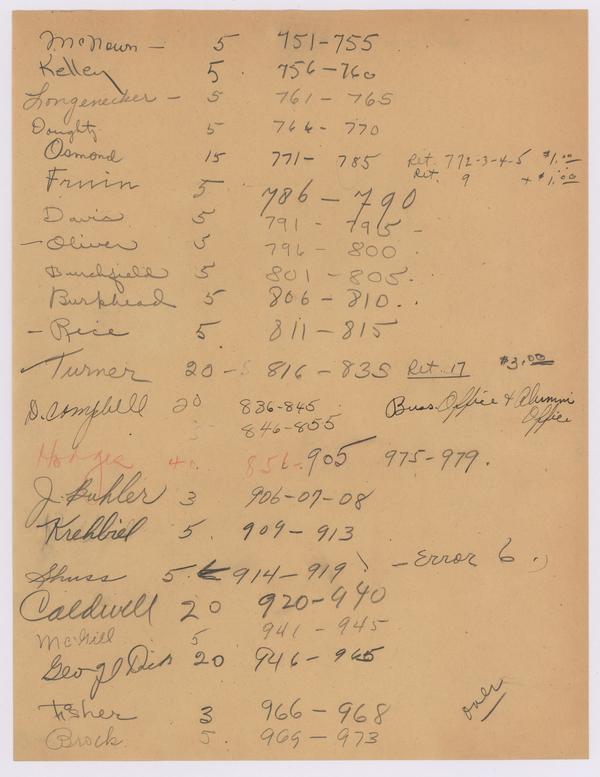 McNown - 5 751-755
Kelley 5. 756-760
Longenecker - 5 761 - 765
Doughty 5 766 - 770
Osmond 15 771- 785 Ret. 772-3-4-5 $1.00
Ret. 9 + $1.00
Fruin 5 786 - 790
Davis 5 791 - 795 -
- Oliver 5 796 - 800 .
Burchfield 5 801 - 805.
Burkhead 5 806 - 810 . .
- Rice 5. 811 - 815
Turner 20 - 816 - 835 Ret. 17 $3.00
D. Campbell 20 836-845 Buss. Office & Alumni
846-855 Office
Hodges 40 856-905 975-979.
J. Buhler 3 906-07-08
Krehbiel 5. 909 - 913
Shuss 5. 914-919 - Error 6 .
Caldwell 20 920-940
McGill 5 941 - 945
George Dick 20 946 - 965
Fisher 3 966 - 968 over
Brock 5. 969 - 973